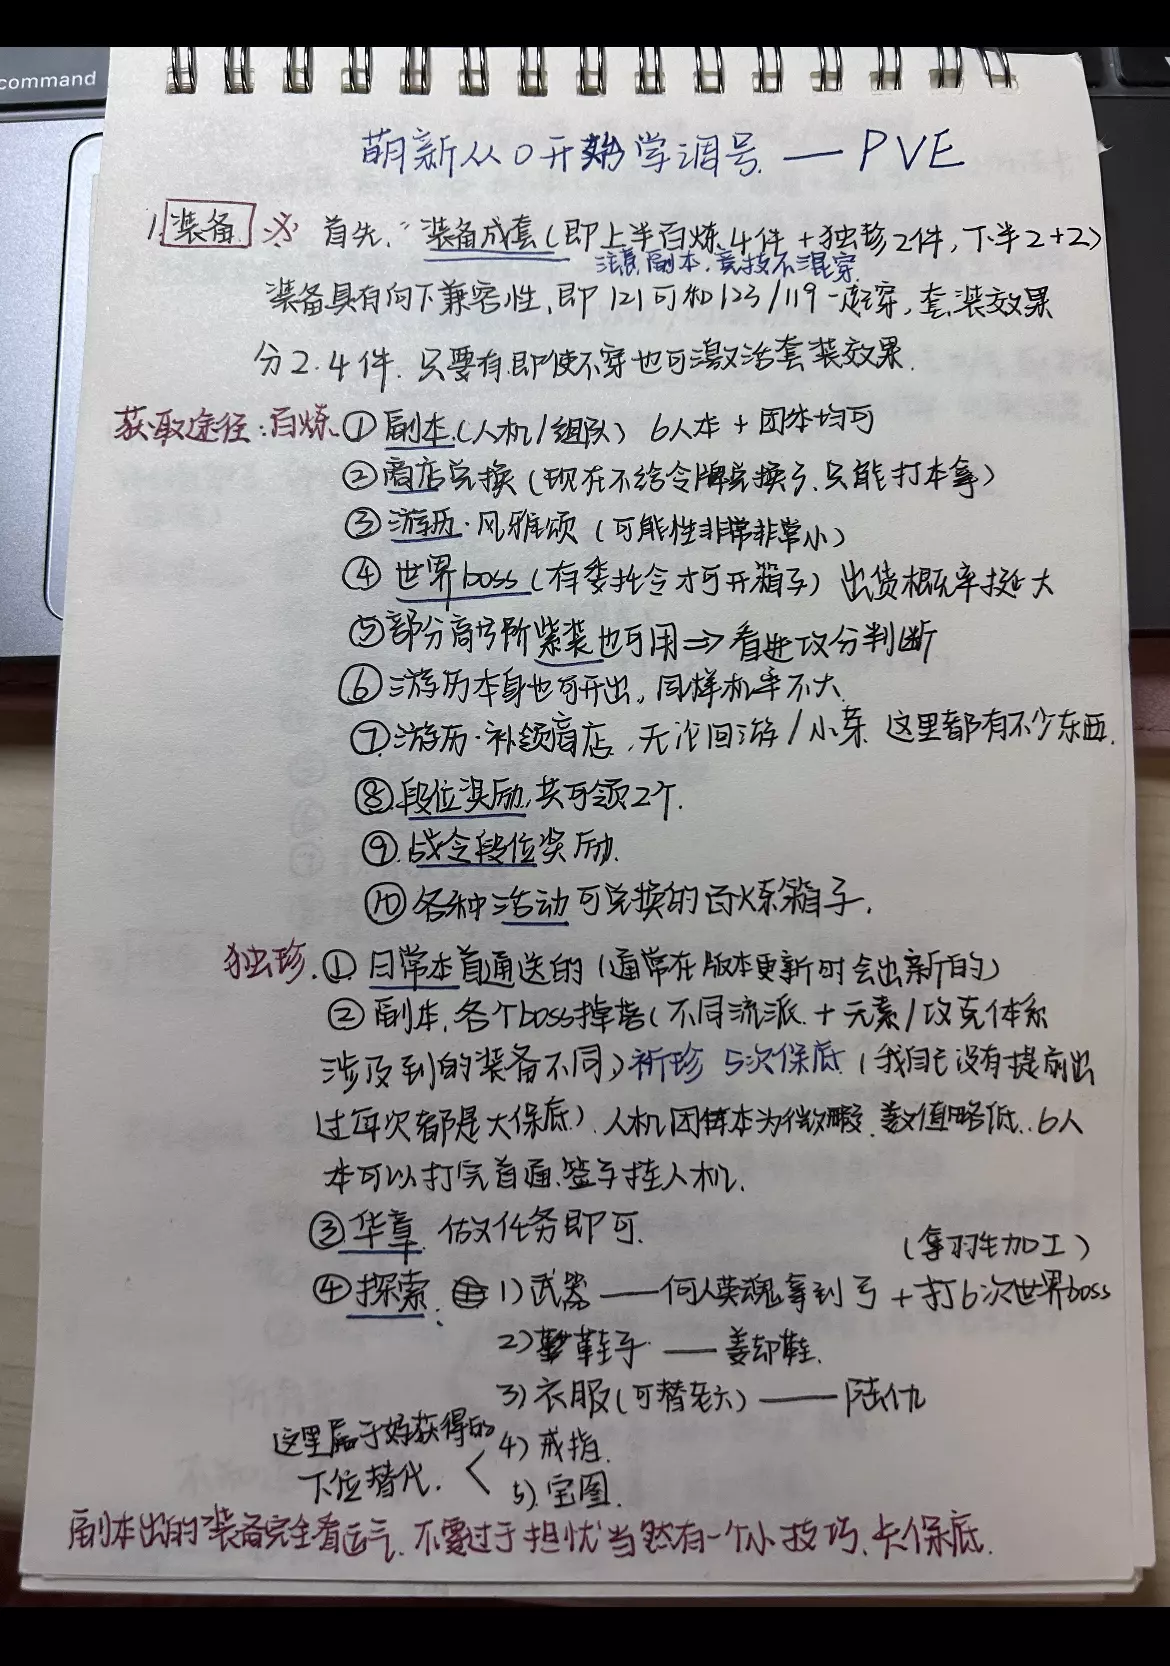 command
萌新从0开始学调号.——PVE
1.装备.※ 首先,“装备成套(即上半百炼4件+独珍2件,下半2+2)
注意,副本.竞技不混穿.
装备具有向下兼容性,即121可和123/119一起穿,套装效果
分2.4件.只要有.即使不穿也可激活套装效果.
获取途径:百炼.①副本.(人机/组队) 6人本+团本均可
②商店兑换(现在不给令牌兑换了.只能打本拿)
③游历·风雅颂(可能性非常非常小)
④世界boss(有委托令才可开箱子)出货概率挺大
⑤部分高号阶紫装也可用⇒看进攻分判断
⑥游历本身也可开出,同样机率不大.
⑦游历·补领商店,无论回游/小芽.这里都有不少东西.
⑧段位奖励,共可领2个.
⑨.战令段位奖励.
⑩各种活动可兑换的百炼箱子.
独珍.①.日常本首通送的(通常在版本更新时会出新的)
②副本,各个boss掉落(不同流派.+元素/攻克体系
涉及到的装备不同)祈珍 5次保底.(我自己没有提前出
过每次都是大保底).人机团体本为微暇.数值略低.6人
本可以打完首通.签子挂人机.
③华章.做任务即可.
(拿羽生加工)
④探索. 1)武器——何人英魂拿到弓+打6次世界boss
2)鞋子.——姜却鞋.
3)衣服(可替老六)——陆仇
这里属于好获得的 4)戒指.
下位替代. < 5).宝图.
副本出的装备完全看运气.不要过于担忧当然有一个小技巧.卡保底.